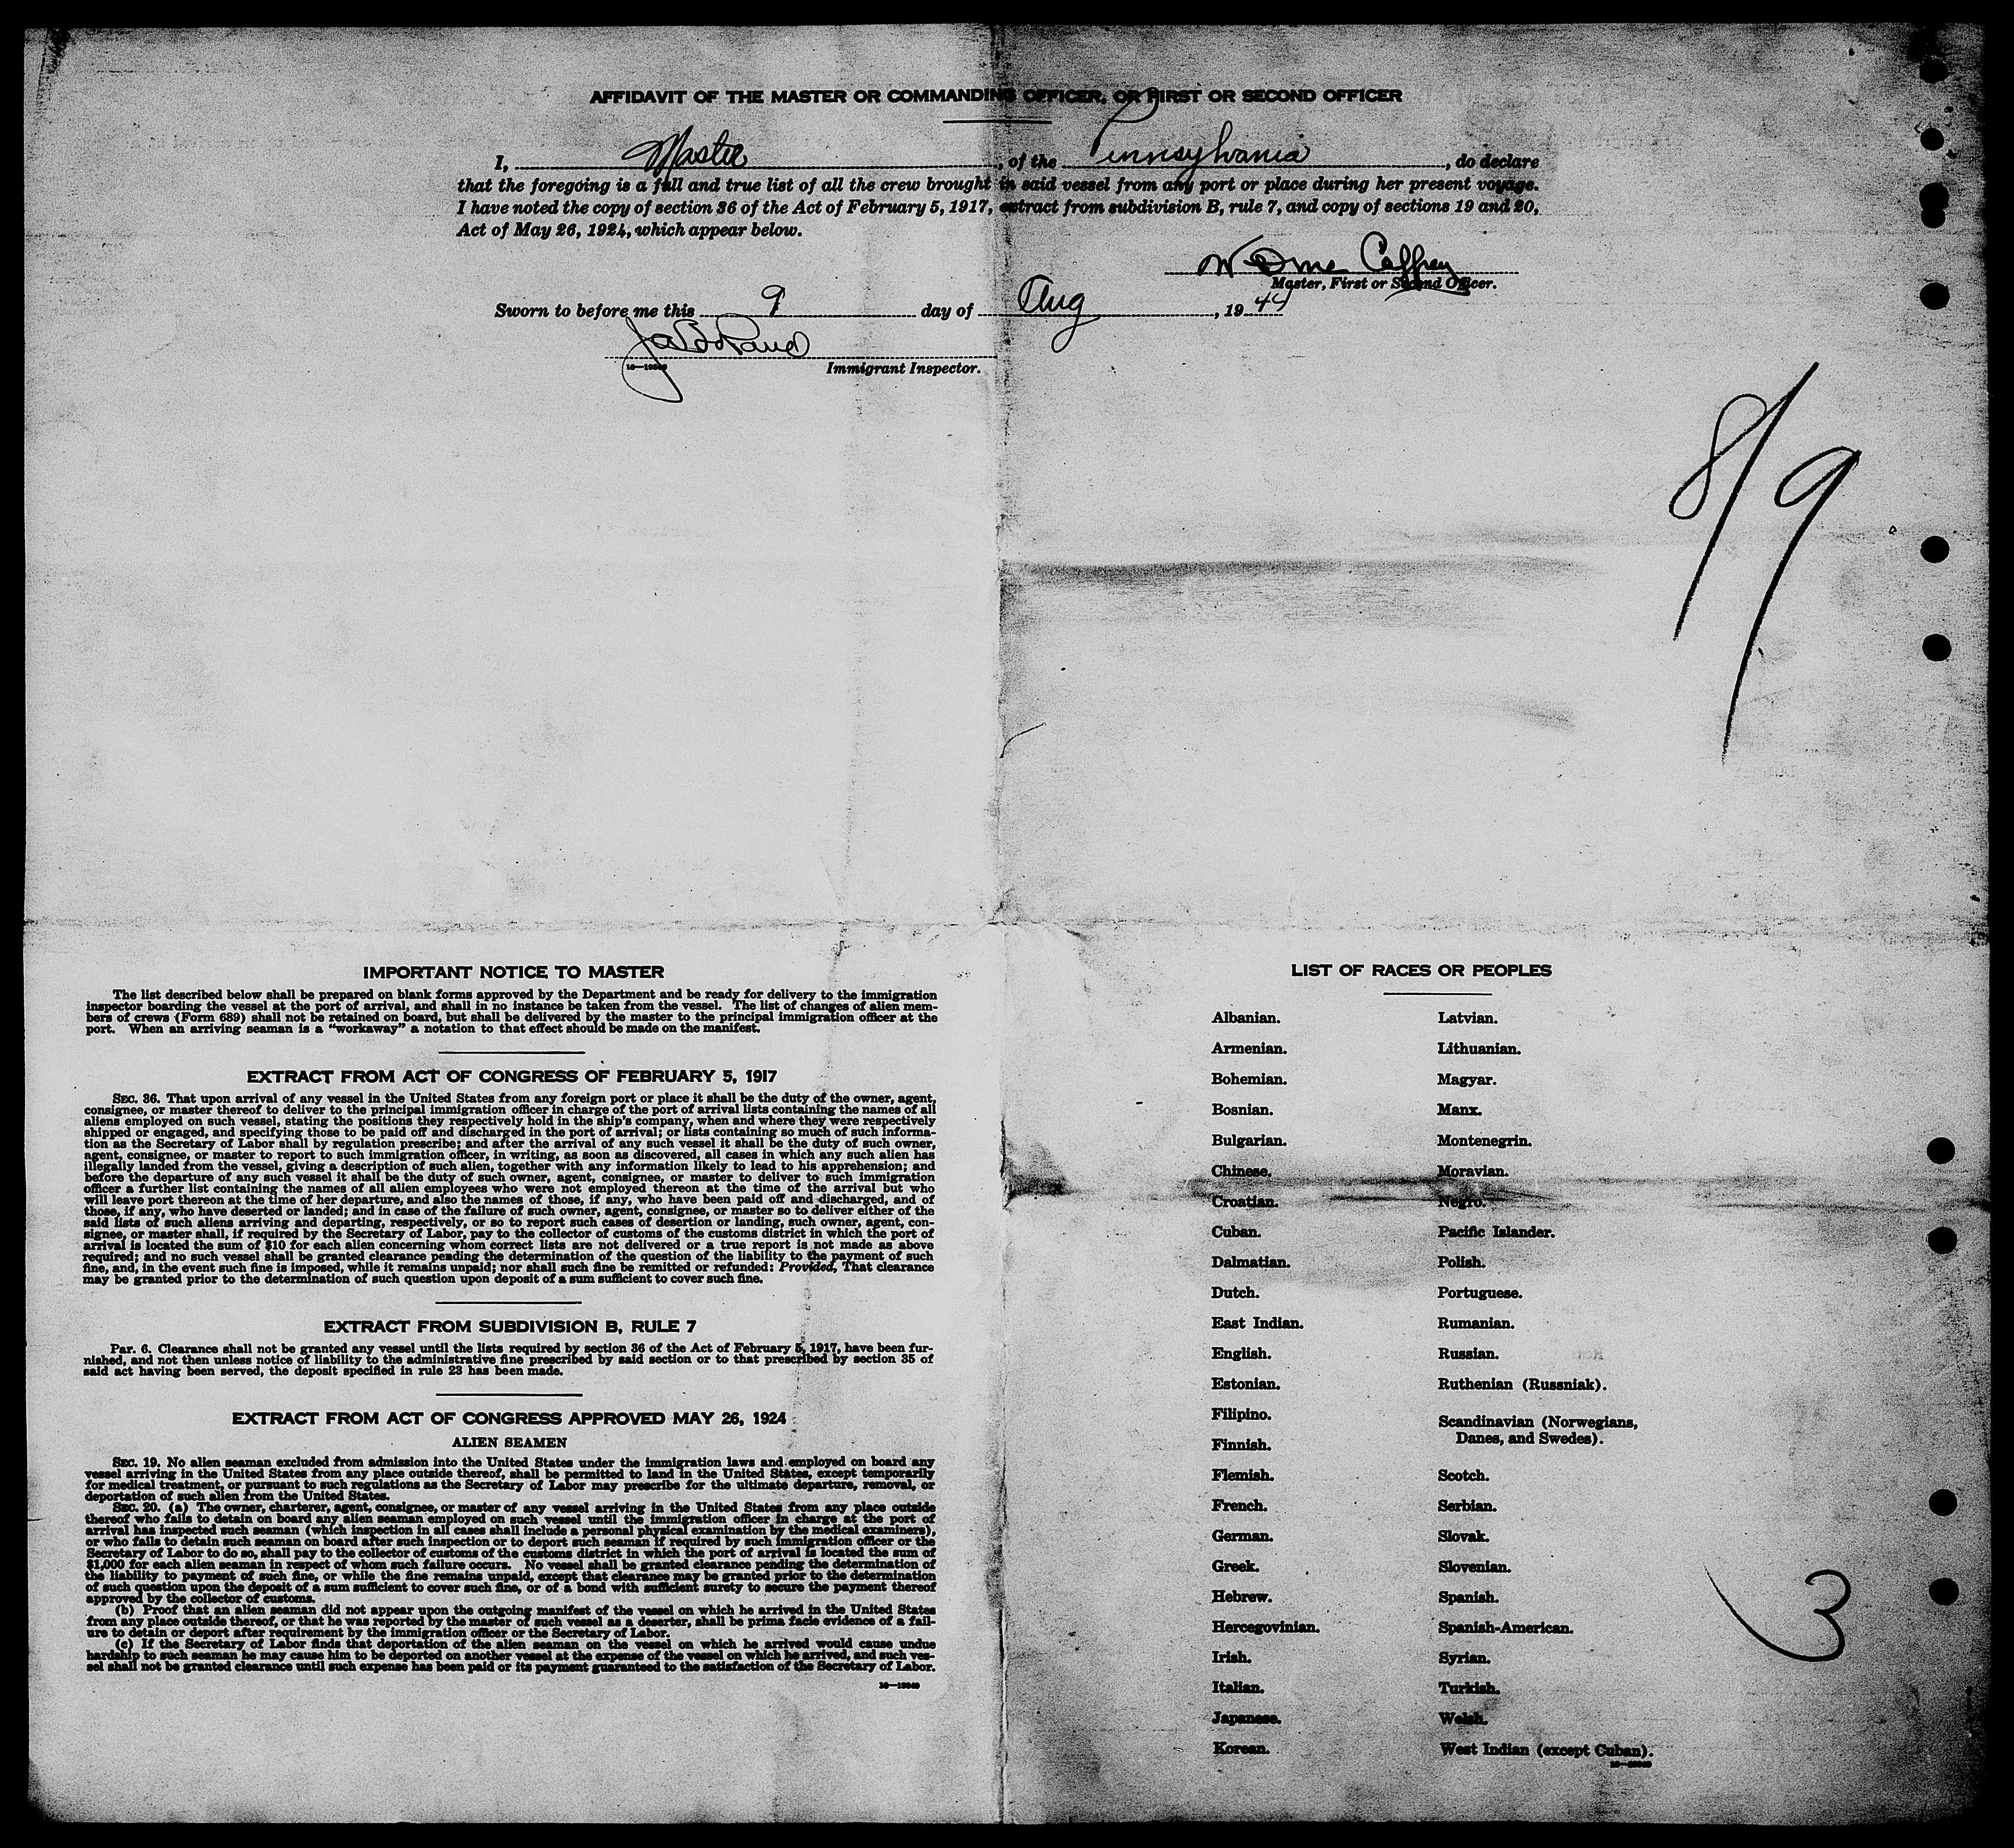 AFFIDAVIT OF THE MASTER OR COMMANDING OFFICER, OR FIRST OR SECOND OFFICER
I, Master, of the Pennsylvania, do declare
that the foregoing is a full and true list of all the crew brought in said vessel from any port or place during her present voyage.
I have noted the copy of section 36 of the Act of February 5, 1917, extract from subdivision B, rule 7, and copy of sections 19 and 20,
Act of May 26, 1924, which appear below.
Caffrey
Master, First or Second Officer.
Sworn to before me this 9 day of Aug, 1944
16—19240
Immigrant Inspector.
8/9
IMPORTANT NOTICE TO MASTER
The list described below shall be prepared on blank forms approved by the Department and be ready for delivery to the immigration
inspector boarding the vessel at the port of arrival, and shall in no instance be taken from the vessel. The list of changes of alien mem-
bers of crews (Form 689) shall not be retained on board, but shall be delivered by the master to the principal immigration officer at the
port. When an arriving seaman is a "workaway" a notation to that effect should be made on the manifest.
EXTRACT FROM ACT OF CONGRESS OF FEBRUARY 5, 1917
SEC. 36. That upon arrival of any vessel in the United States from any foreign port or place it shall be the duty of the owner, agent,
consignee, or master thereof to deliver to the principal immigration officer in charge of the port of arrival lists containing the names of all
aliens employed on such vessel, stating the positions they respectively hold in the ship's company, when and where they were respectively
shipped or engaged, and specifying those to be paid off and discharged in the port of arrival; or lists containing so much of such informa-
tion as the Secretary of Labor shall by regulation prescribe; and after the arrival of any such vessel it shall be the duty of such owner,
agent, consignee, or master to report to such immigration officer, in writing, as soon as discovered, all cases in which any such alien has
illegally landed from the vessel, giving a description of such alien, together with any information likely to lead to his apprehension; and
before the departure of any such vessel it shall be the duty of such owner, agent, consignee, or master to deliver to such immigration
officer a further list containing the names of all alien employees who were not employed thereon at the time of the arrival but who
will leave port thereon at the time of her departure, and also the names of those, if any, who have been paid off and discharged, and of
those, if any, who have deserted or landed; and in case of the failure of such owner, agent, consignee, or master so to deliver either of the
said lists of such aliens arriving and departing, respectively, or so to report such cases of desertion or landing, such owner, agent, con-
signee, or master shall, if required by the Secretary of Labor, pay to the collector of customs of the customs district in which the port of
arrival is located the sum of $10 for each alien concerning whom correct lists are not delivered or a true report is not made as above
required; and no such vessel shall be granted clearance pending the determination of the question of the liability to the payment of such
fine, and, in the event such fine is imposed, while it remains unpaid; nor shall such fine be remitted or refunded: Provided, That clearance
may be granted prior to the determination of such question upon deposit of a sum sufficient to cover such fine.
EXTRACT FROM SUBDIVISION B, RULE 7
Par. 6. Clearance shall not be granted any vessel until the lists required by section 36 of the Act of February 5, 1917, have been fur-
nished, and not then unless notice of liability to the administrative fine prescribed by said section or to that prescribed by section 35 of
said act having been served, the deposit specified in rule 23 has been made.
EXTRACT FROM ACT OF CONGRESS APPROVED MAY 26, 1924
ALIEN SEAMEN
SEC. 19. No alien seaman excluded from admission into the United States under the immigration laws and employed on board any
vessel arriving in the United States from any place outside thereof, shall be permitted to land in the United States, except temporarily
for medical treatment, or pursuant to such regulations as the Secretary of Labor may prescribe for the ultimate departure, removal, or
deportation of such alien from the United States.
SEC. 20. (a) The owner, charterer, agent, consignee, or master of any vessel arriving in the United States from any place outside
thereof who fails to detain on board any alien seaman employed on such vessel until the immigration officer in charge at the port of
arrival has inspected such seaman (which inspection in all cases shall include a personal physical examination by the medical examiners),
or who fails to detain such seaman on board after such inspection or to deport such seaman if required by such immigration officer or the
Secretary of Labor to do so, shall pay to the collector of customs of the customs district in which the port of arrival is located the sum of
$1,000 for each alien seaman in respect of whom such failure occurs. No vessel shall be granted clearance pending the determination of
the liability to payment of such fine, or while the fine remains unpaid, except that clearance may be granted prior to the determination
of such question upon the deposit of a sum sufficient to cover such fine, or of a bond with sufficient surety to secure the payment thereof
approved by the collector of customs.
(b) Proof that an alien seaman did not appear upon the outgoing manifest of the vessel on which he arrived in the United States
from any place outside thereof, or that he was reported by the master of such vessel as a deserter, shall be prima facie evidence of a fail-
ure to detain or deport after requirement by the immigration officer or the Secretary of Labor.
(c) If the Secretary of Labor finds that deportation of the alien seaman on the vessel on which he arrived would cause undue
hardship to such seaman he may cause him to be deported on another vessel at the expense of the vessel on which he arrived, and such ves-
sel shall not be granted clearance until such expense has been paid or its payment guaranteed to the satisfaction of the Secretary of Labor.
LIST OF RACES OR PEOPLES
Albanian.
Armenian.
Bohemian.
Bosnian.
Bulgarian.
Chinese.
Croatian.
Cuban.
Dalmatian.
Dutch.
East Indian.
English.
Estonian.
Filipino.
Finnish.
Flemish.
French.
German.
Greek.
Hebrew.
Hercegovinian.
Irish.
Italian.
Japanese.
Korean.
Latvian.
Lithuanian.
Magyar.
Manx.
Montenegrin.
Moravian.
Negro.
Pacific Islander.
Polish.
Portuguese.
Rumanian.
Russian.
Ruthenian (Russniak).
Scandinavian (Norwegians,
Danes, and Swedes).
Scotch.
Serbian.
Slovak.
Slovenian.
Spanish.
Spanish-American.
Syrian.
Turkish.
Welsh.
West Indian (except Cuban).
3